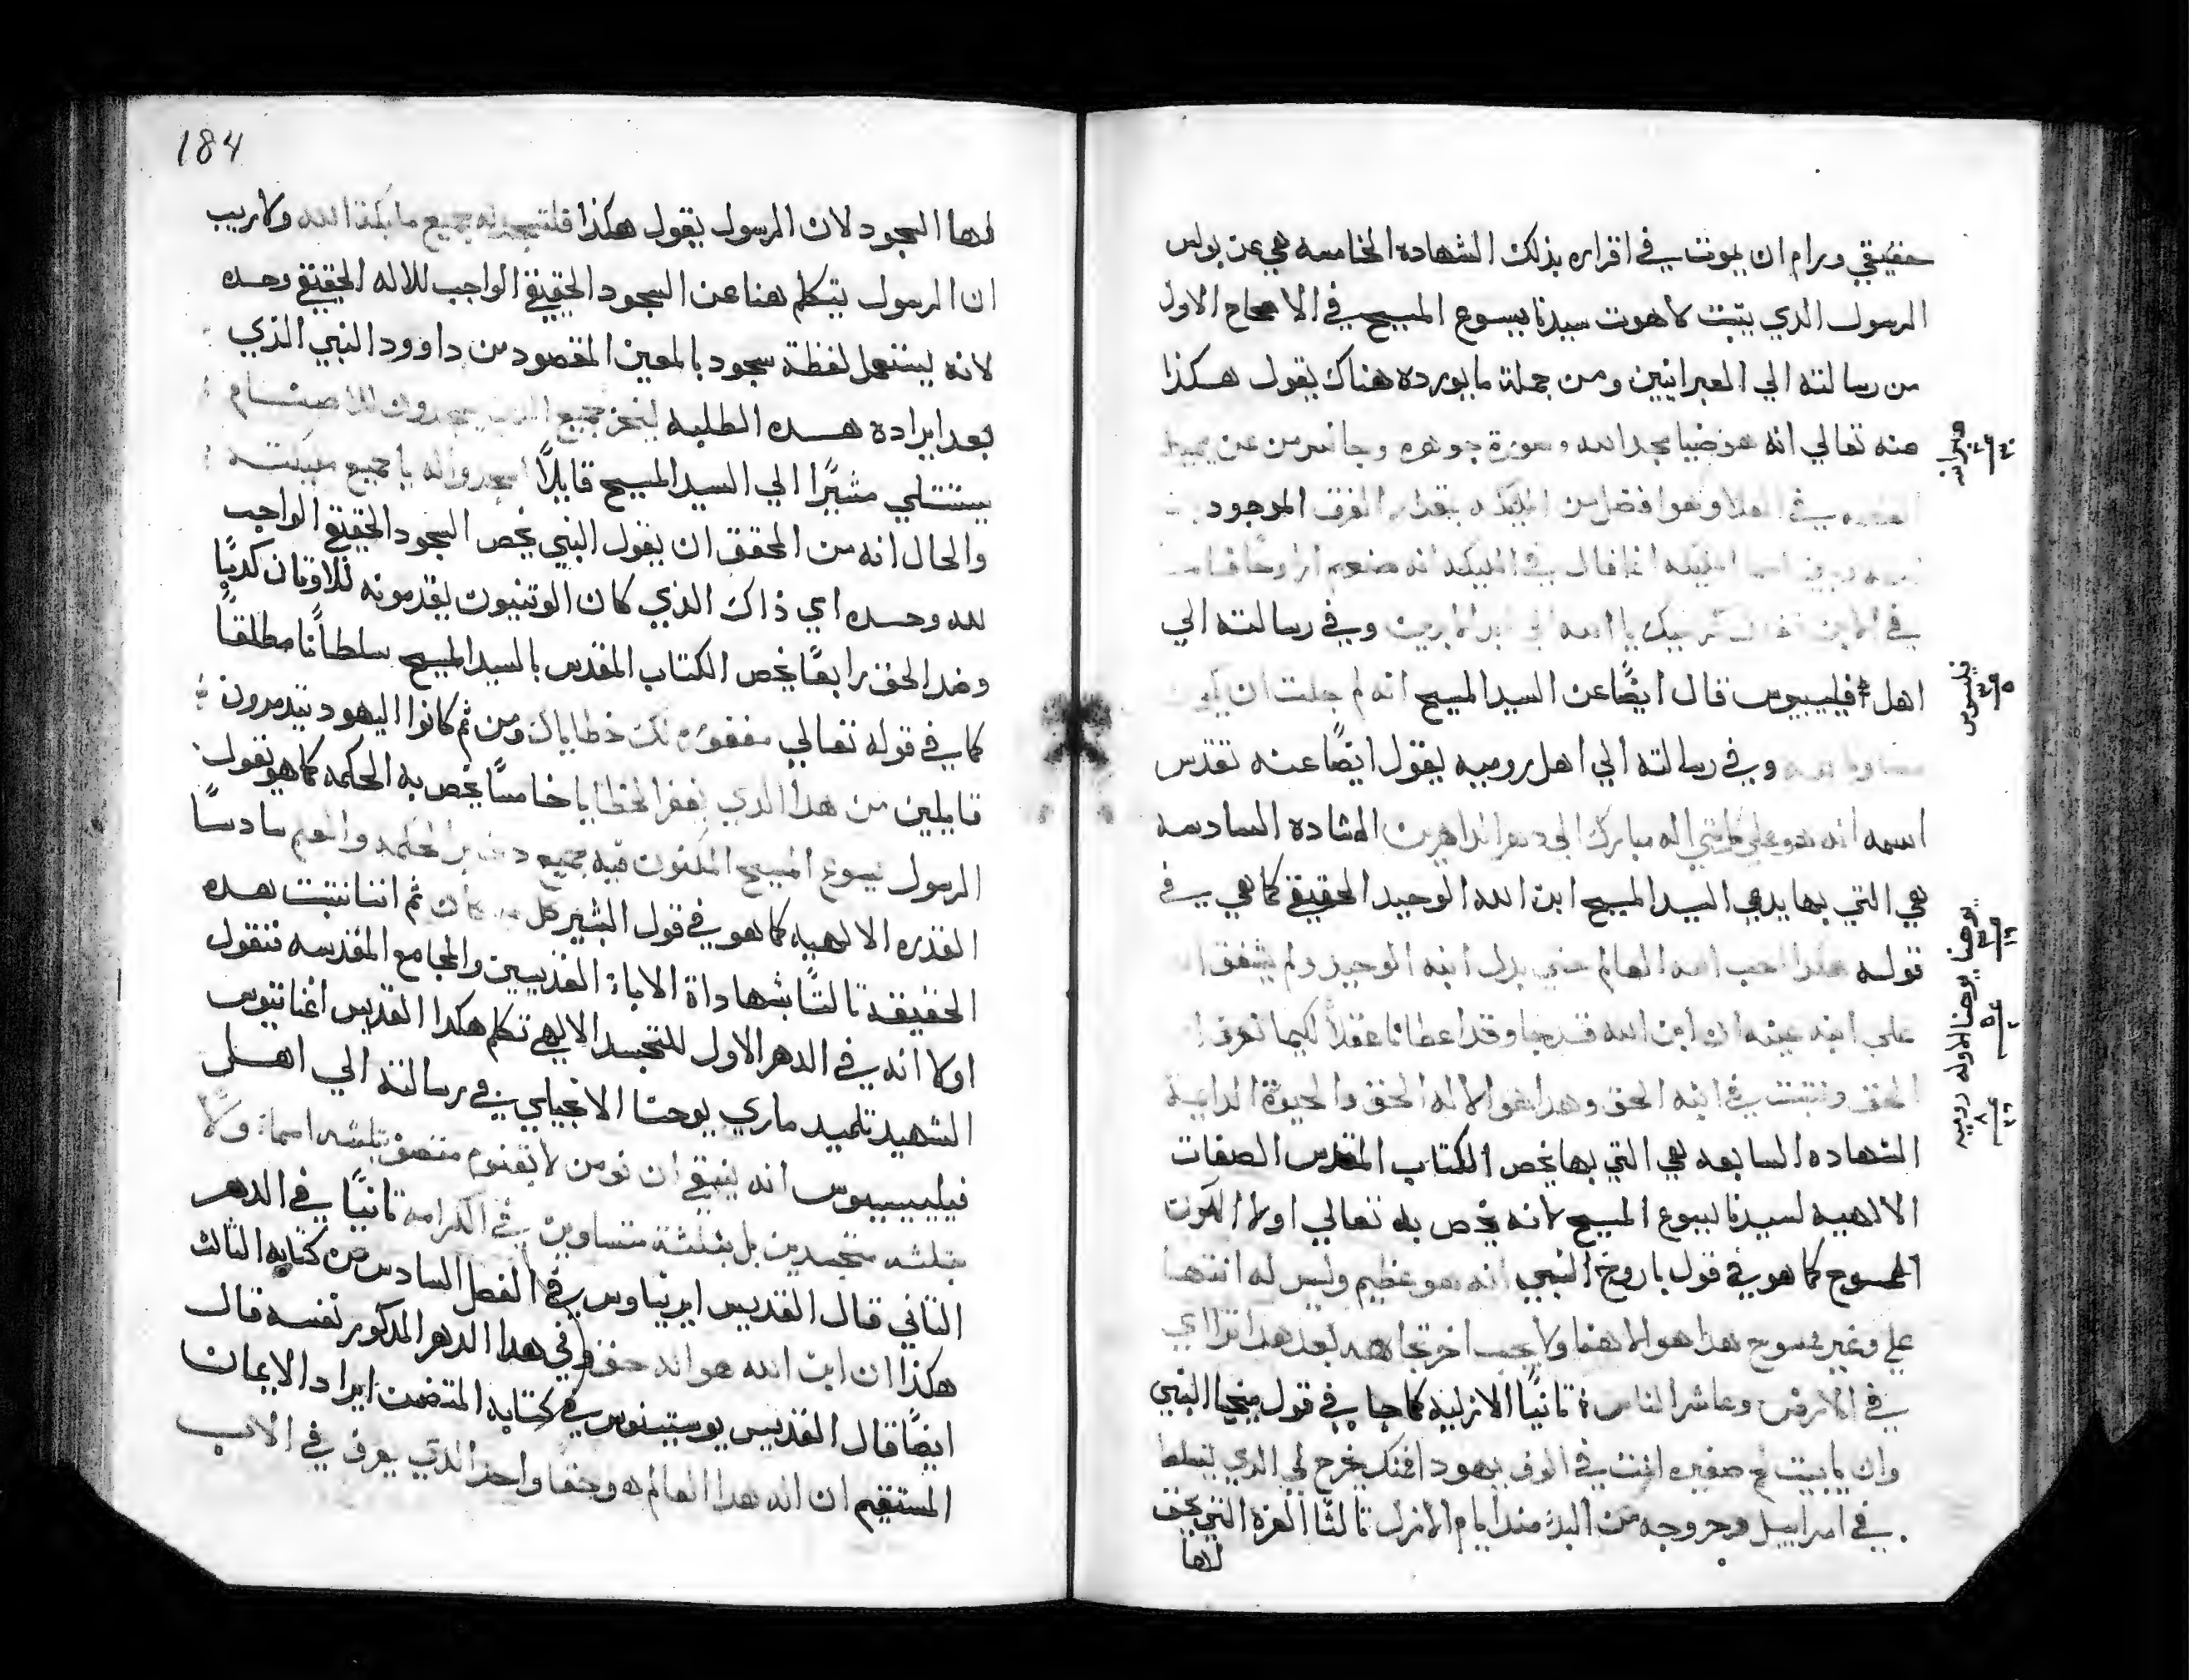 حقيقي ورام ان يموت في اقراره بذلك الشهادة الخامسه هي عن بولس
الرسول الذي يثبت لاهوت سيدنا يسوع المسيح في الاصحاح الاول
من رسالته الي العبرانيين ومن جملة ما يورده هناك يقول هكذا
عنه تعالي انه هو ضيا مجد الله وصورة جوهره وجالس من عن يمين
في العلا وهو افضل من الملايكه بقدار الفرق الموجود
انما قال في الملايكه انه صنعهم ارواحًا
في الابن يا الله الي ابد الابدين وفي رسالته الي
اهل فيليبيوس قال ايضًا عن السيد المسيح انه لم ان يكون
وفي رسالته الي اهل روميه يقول ايضًا عنه تقدس
اسمه انه هو علي كل شي اله مبارك الي دهر الداهرين الشاده السادسه
هي التي بها يدعي السيد المسيح ابن الله الوحيد الحقيقي كما هي في
قوله هكذا احب الله العالم حتي بدل ابنه الوحيد ولم يشفق
علي ابنه عينه ان ابن الله قد جا وقد اعطانا عقلاً لكيما نعرف
الحق ونثبت في ابنه الحق وهدا هو الاله الحق والحيوة الدايمة
الشهاده السابعه هي التي بها يخص الكتاب المقدس الصفات
الالهيه لسيدنا يسوع المسيح لانه يخص به تعالي اولا الكون
كما هو في قول باروخ النبي انه هو عظيم وليس له انتها
علي وغير ممسوح هدا هو الاهنا ولا يحسب اخر تجاهه بعد هدا ترااي
في الارض وعاشر الناس ثانيًا الازليه كما جا في قول ميخا النبي
وان يا بيت لحم صغيره انت في الوف يهود افمنك يخرج لي الدي يتسلط
في اسراييل وخروجه من البدء مند ايام الازل ثالثًا العزه التي يحق
لها
عبرانيه
فيلبسيوس
يوحنا
يوحنا الاوله
روميه
184
لها السجود لان الرسول يقول هكذا فلتسجد له جميع ملايكة الله ولا ريب
ان الرسول يتكلم هنا عن السجود الحقيقي الواجب للاله الحقيقي وحده
لانه يستعمل لفظة سجود بالمعين المقصود من داوود النبي الذي
بعد ايراده هده الطلبه ليخز جميع الدين يسجدون للاصنام
يستتلي مشيرًا الي السيد المسيح قايلاً اسجدوا له يا جميع ملايكته
والحال انه من المحقق ان يقول النبي يخص السجود الحقيقي الواجب
لله وحده اي ذاك الذي كان الوتنيون يقدمونه للاوتان كدبًا
وضد الحق رابعًا يخص الكتاب المقدس بالسيد المسيح سلطانًا مطلقًا
كما في قوله تعالي مغفوره لك خطاياك ومن ثم كانوا اليهود يتدمرون
قايلين من هدا الدي يغفر الخطايا خامسًا يخص به الحكمه كما هو يقول
الرسول يسوع المسيح المكنون فيه جميع دخاير الحكمه والعلم سادسًا
القدره الالهيه كما هو في قول البشير كل به كان ثم اننا نتبت هده
الحقيقه تالتًا بشهاداة الاباء القديسين والمجامع المقدسه فنقول
اولا انه في الدهر الاول للتجسد الالهي تكلم هكدا القديس اغناتيوس
الشهيد تلميد ماري يوحنا الانجيلي في رسالته الي اهل
فيليبيسيوس انه ينبغي ان نومن لا بقنوم متصف بتلثه اسماء ولا
بتلثه متجسدين بل بثلثة متساوين في الكرامه ثانيًا في الدهر
التاني قال القديس ايريناوس في الفصل السادس من كتابه الثالث
هكذا ان ابن الله هو اله حق وفي هدا الدهر المدكور نفسه قال
ايضًا قال القديس يوستينوس في كتابه المتضمن ايراد الايمان
المستقيم ان اله هدا العالم هو حقًا واحد الدي يعرف في الاب